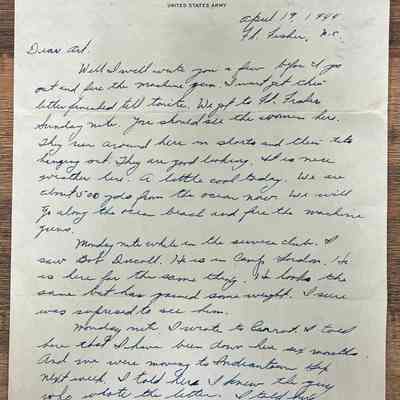 UNITED STATES ARMY
April 19, 1944
Ft. Fisher, N.C.
Dear Art.
Well I will write you a few before I go
out and fire the machine guns. I wont get this
letter finished till tonite. We got to Ft. Fisher
Sunday nite. You should see the women here.
They run around here in shorts and their tits
hanging out. They are good looking. It is nice
weather here. A little cool today. We are
about 500 yds from the ocean now. We will
go along the ocean beach and fire the machine
guns.
Monday nite while in the service club. I
saw Bob Driscoll. He is in Camp Gordon. He
is here for the same thing. He looks the
same but has gained some weight. I sure
was suprised to see him.
Monday nite I wrote to I told
here that I have been down here six months
And we were moving to Indiantown Gap
next week. I told her I knew the guy
who wrote the letter. I told her